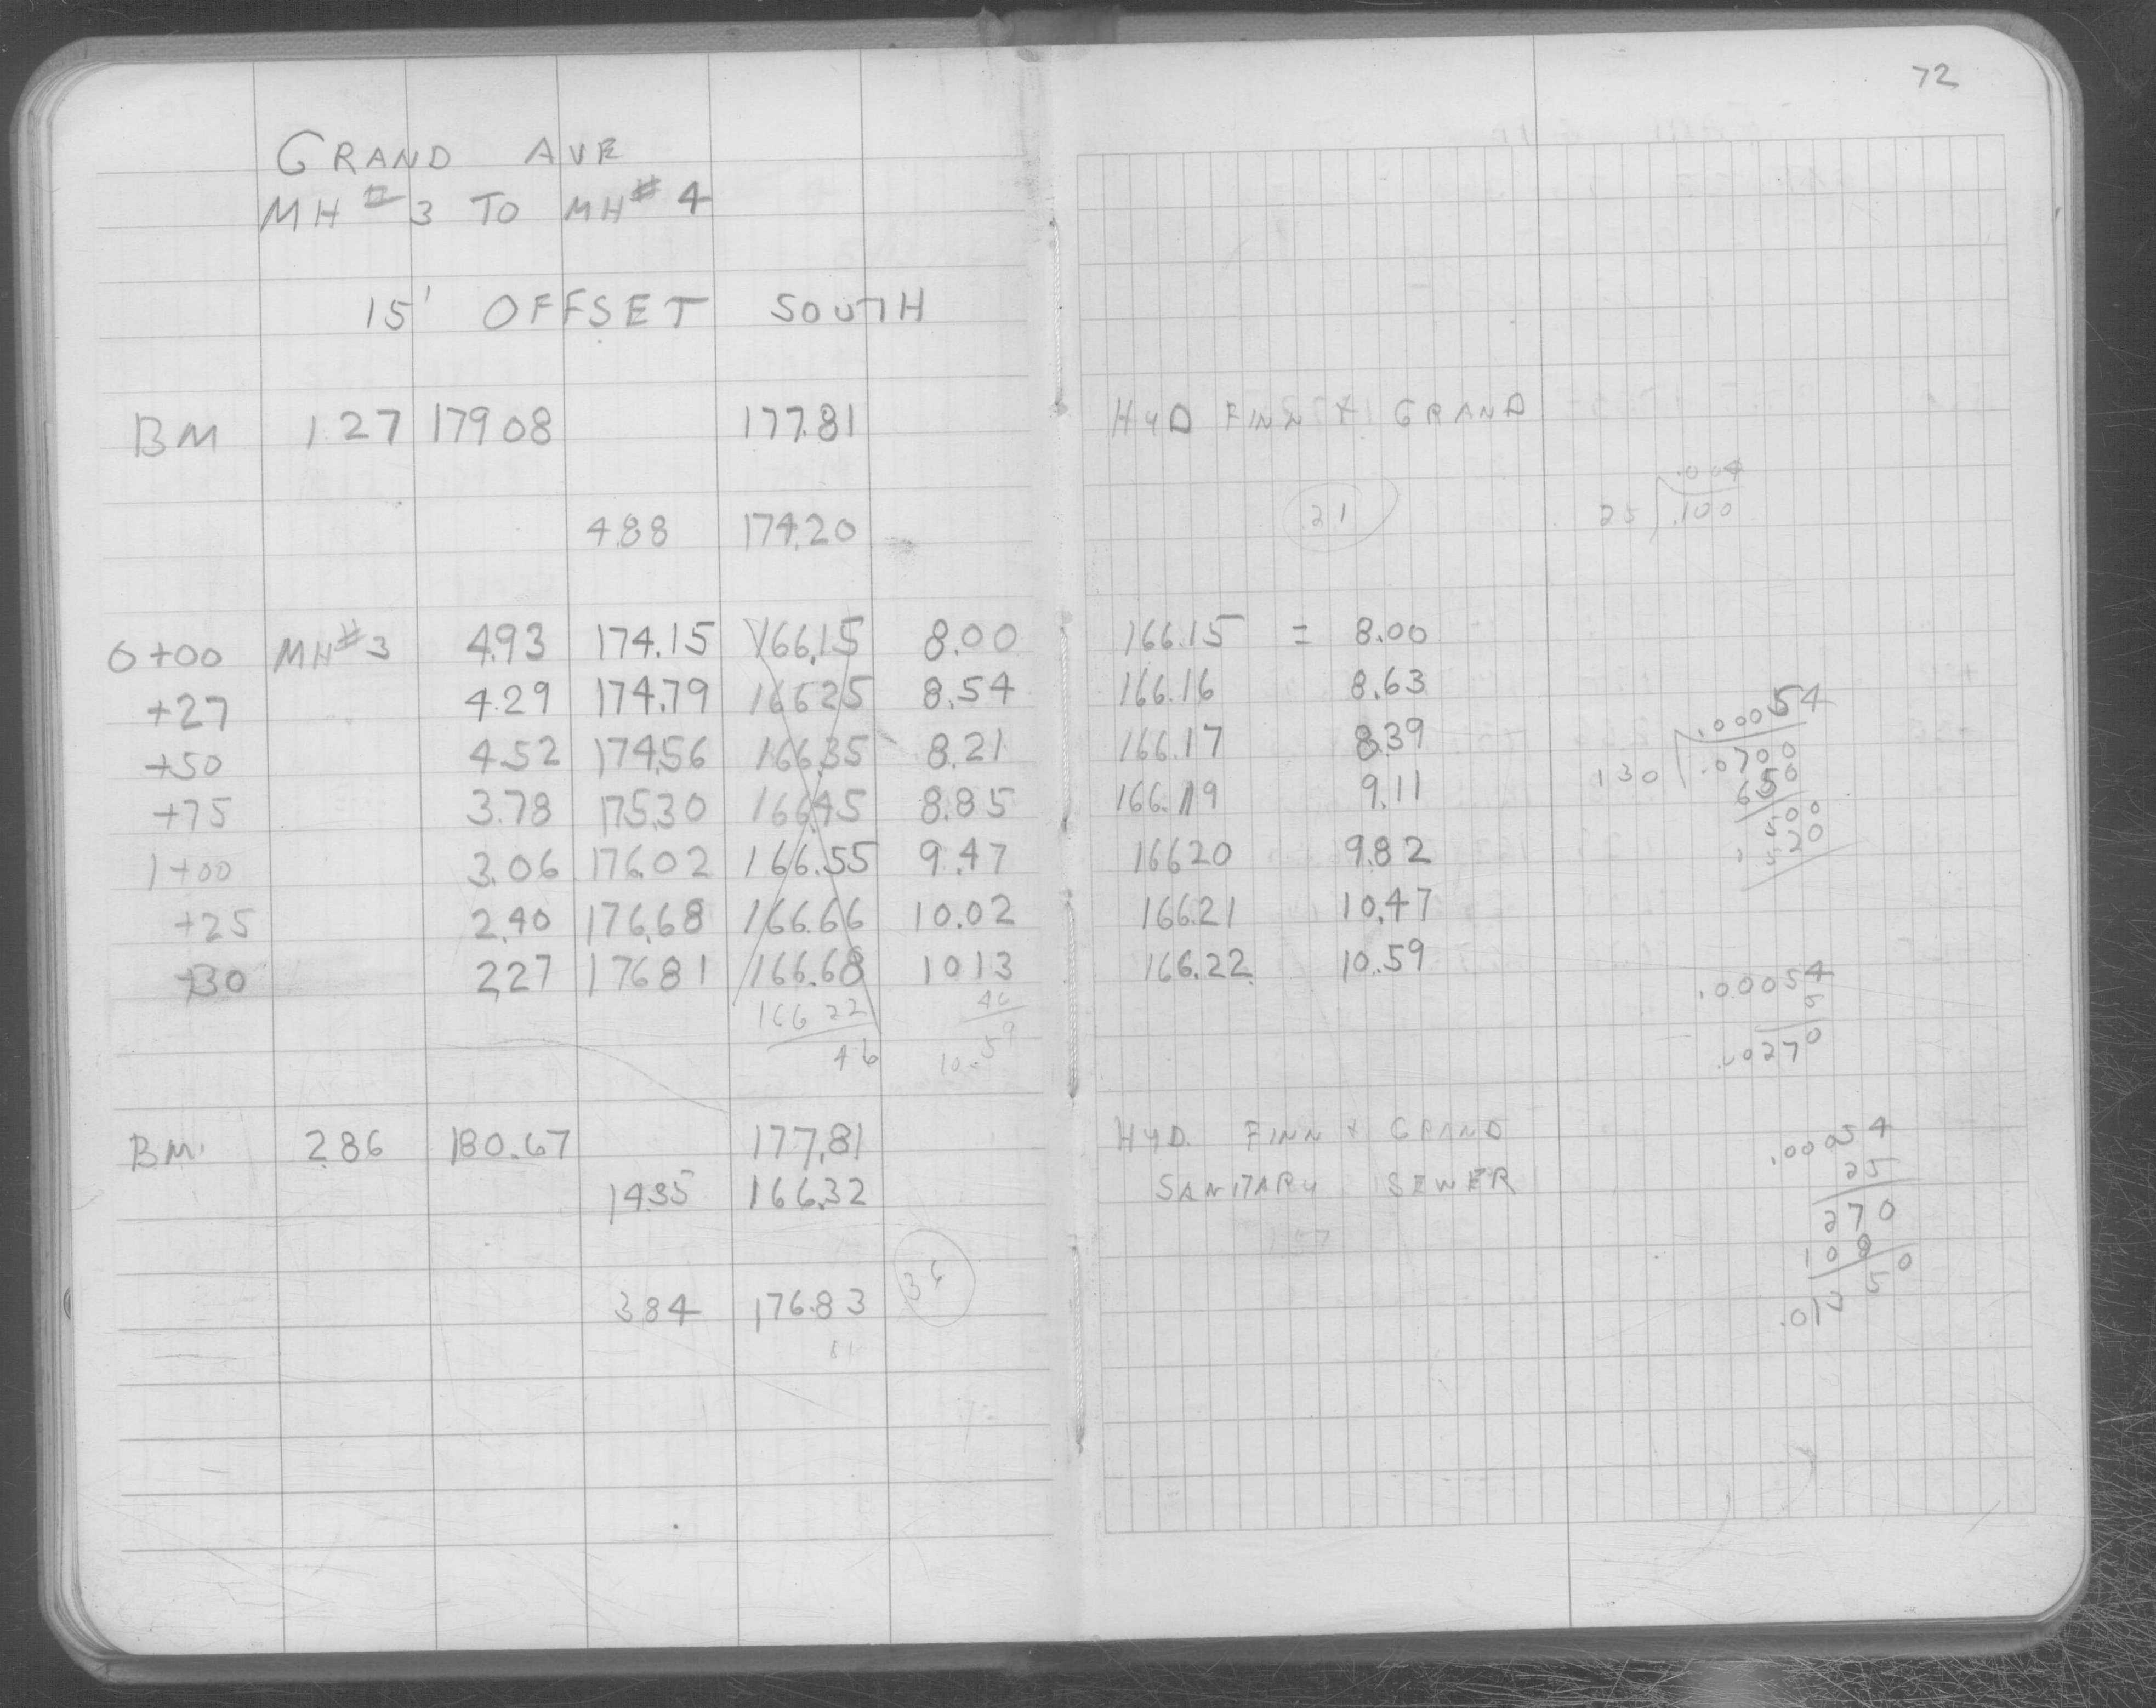 72
GRAND AVE
MH # 3 TO MH # 4
15' OFFSET SOUTH
BM 1.27 179 08 177.81 HYD FINN + GRAND
4.88 174.20 .21 25 .100 .004
0+00 MH#3 4.93 174.15 166.15 8.00 166.15 = 8.00
+27 4.29 174.79 166 25 8.54 166.16 8.63
+50 4.52 174.56 166.35 8.21 166.17 8.39
+75 3.78 175.30 166.45 8.85 166.19 9.11
1+00 3.06 176.02 166.55 9.47 166 20 9.82
+25 2.40 176.68 166.66 10.02 166.21 10.47
+30 2.27 176 81 166.68 10 13 166.22 10.59
166 22 46
46 10.59
.00054
130 .0700
650
500
520
.00054
5
.00270
BM. 2.86 180.67 177.81 HYD. FINN + GRAND
14.35 166.32 SANITARY SEWER
3 84 176.83
81
.00054
25
270
108
.01350